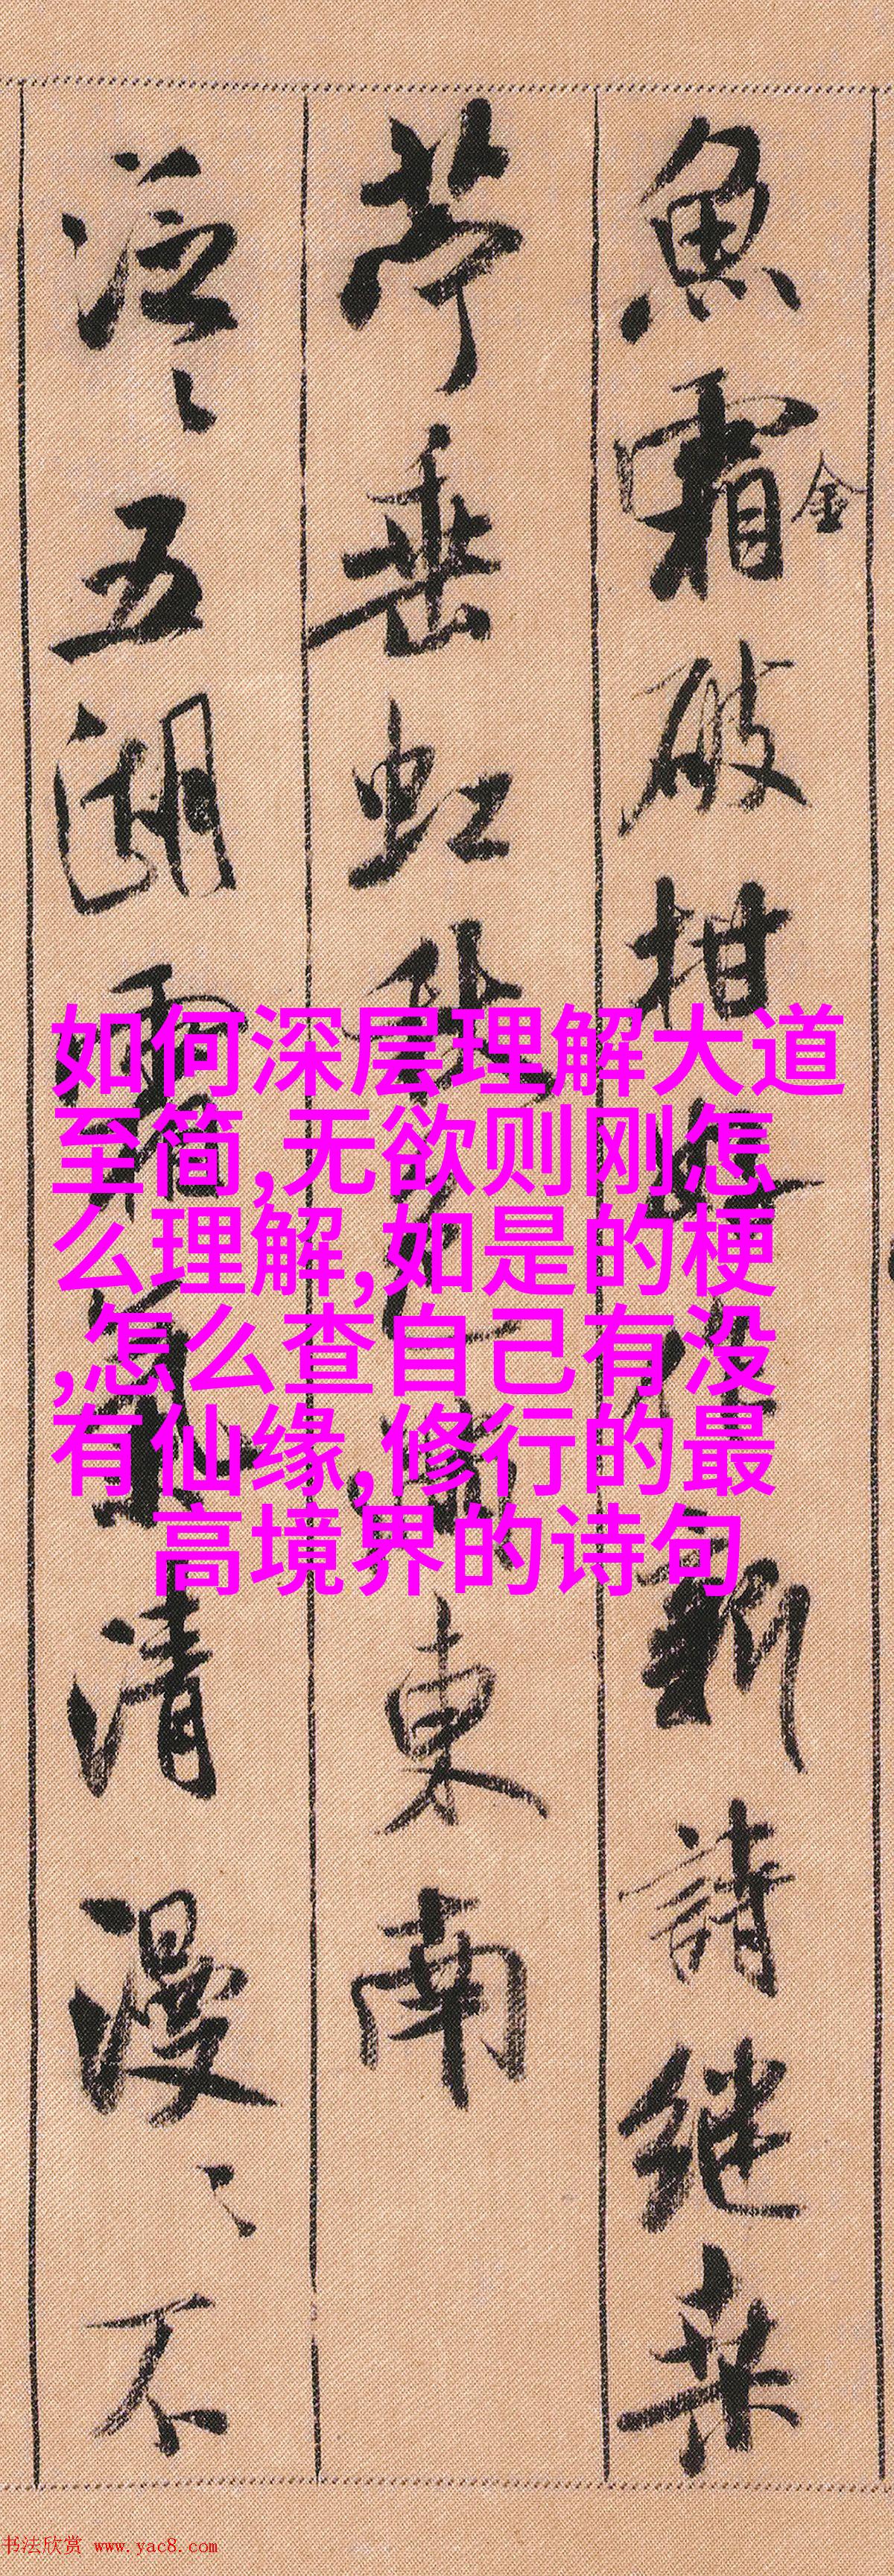 魚霜金破柑好作新詩継桒
苧垂虹秋色滿東南
泛〻五湖霜氣清漫〻不
如何深层理解大道
至简,无欲则刚怎
么理解,如是的梗
,怎么查自己有没
有仙缘,修行的最
高境界的诗句
书法欣赏 www.yac8.com